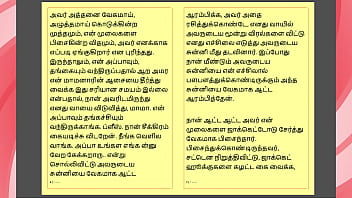 அவர் அத்தனை வேகமாய்,
அழுத்தமாய் கொடுக்கின்ற
முத்தமும், என் முலைகளை
பிசைகின்ற விதமும், அவர் எனக்காக
எப்படி ஏங்குகிறார் என புரிந்தது.
இருந்தாலும், என் அப்பாவும்,
தங்கையும் வந்திருப்பதால் ஆற அமர
என் மாமனாரின் ஆசையை தீர்த்து
வைக்க இது சரியான சமயம் இல்லை
என்பதால், நான் அவரிடமிருந்து
எனது வாயை விடுவித்து, மாமா, என்
அப்பாவும் தங்கச்சியும்
வந்திருக்காங்க. ப்ளீஸ். நான் சீக்கிரம்
கையடிச்சு விடறேன். நீங்க வெளிய
வாங்க. அப்பா உங்கள எங்க ன்னு
வேற கேக்கறாரு. என்று
சொல்லிவிட்டு அவருடைய
சுன்னியை வேகமாக ஆட்ட
ஆரம்பிக்க, அவர் அதை
ரசித்துக்கொண்டே, எனது வாயில்
அவருடைய மூன்று விரல்களை விட்டு
என் எச்சிலை எடுத்து அவருடைய
சுன்னி மீது தடவினார். இப்போது
நான் மீண்டும் அவருடைய
சுன்னியை என் எச்சிலால்
பளபளத்துக்கொண்டிருக்கும் அந்த
சுன்னியை வேகமாக ஆட்ட
ஆரம்பித்தேன்.
நான் ஆட்ட ஆட்ட, அவர் என்
முலைகளை ஜாக்கெட்டோடு சேர்த்து
வேகமாக பிசைந்தார்.
பிசைந்துக்கொண்டிருந்தவர்,
சட்டென நிறுத்திவிட்டு, ஜாக்கெட்
ஹூக்குகளை கழட்ட கை வைக்க,